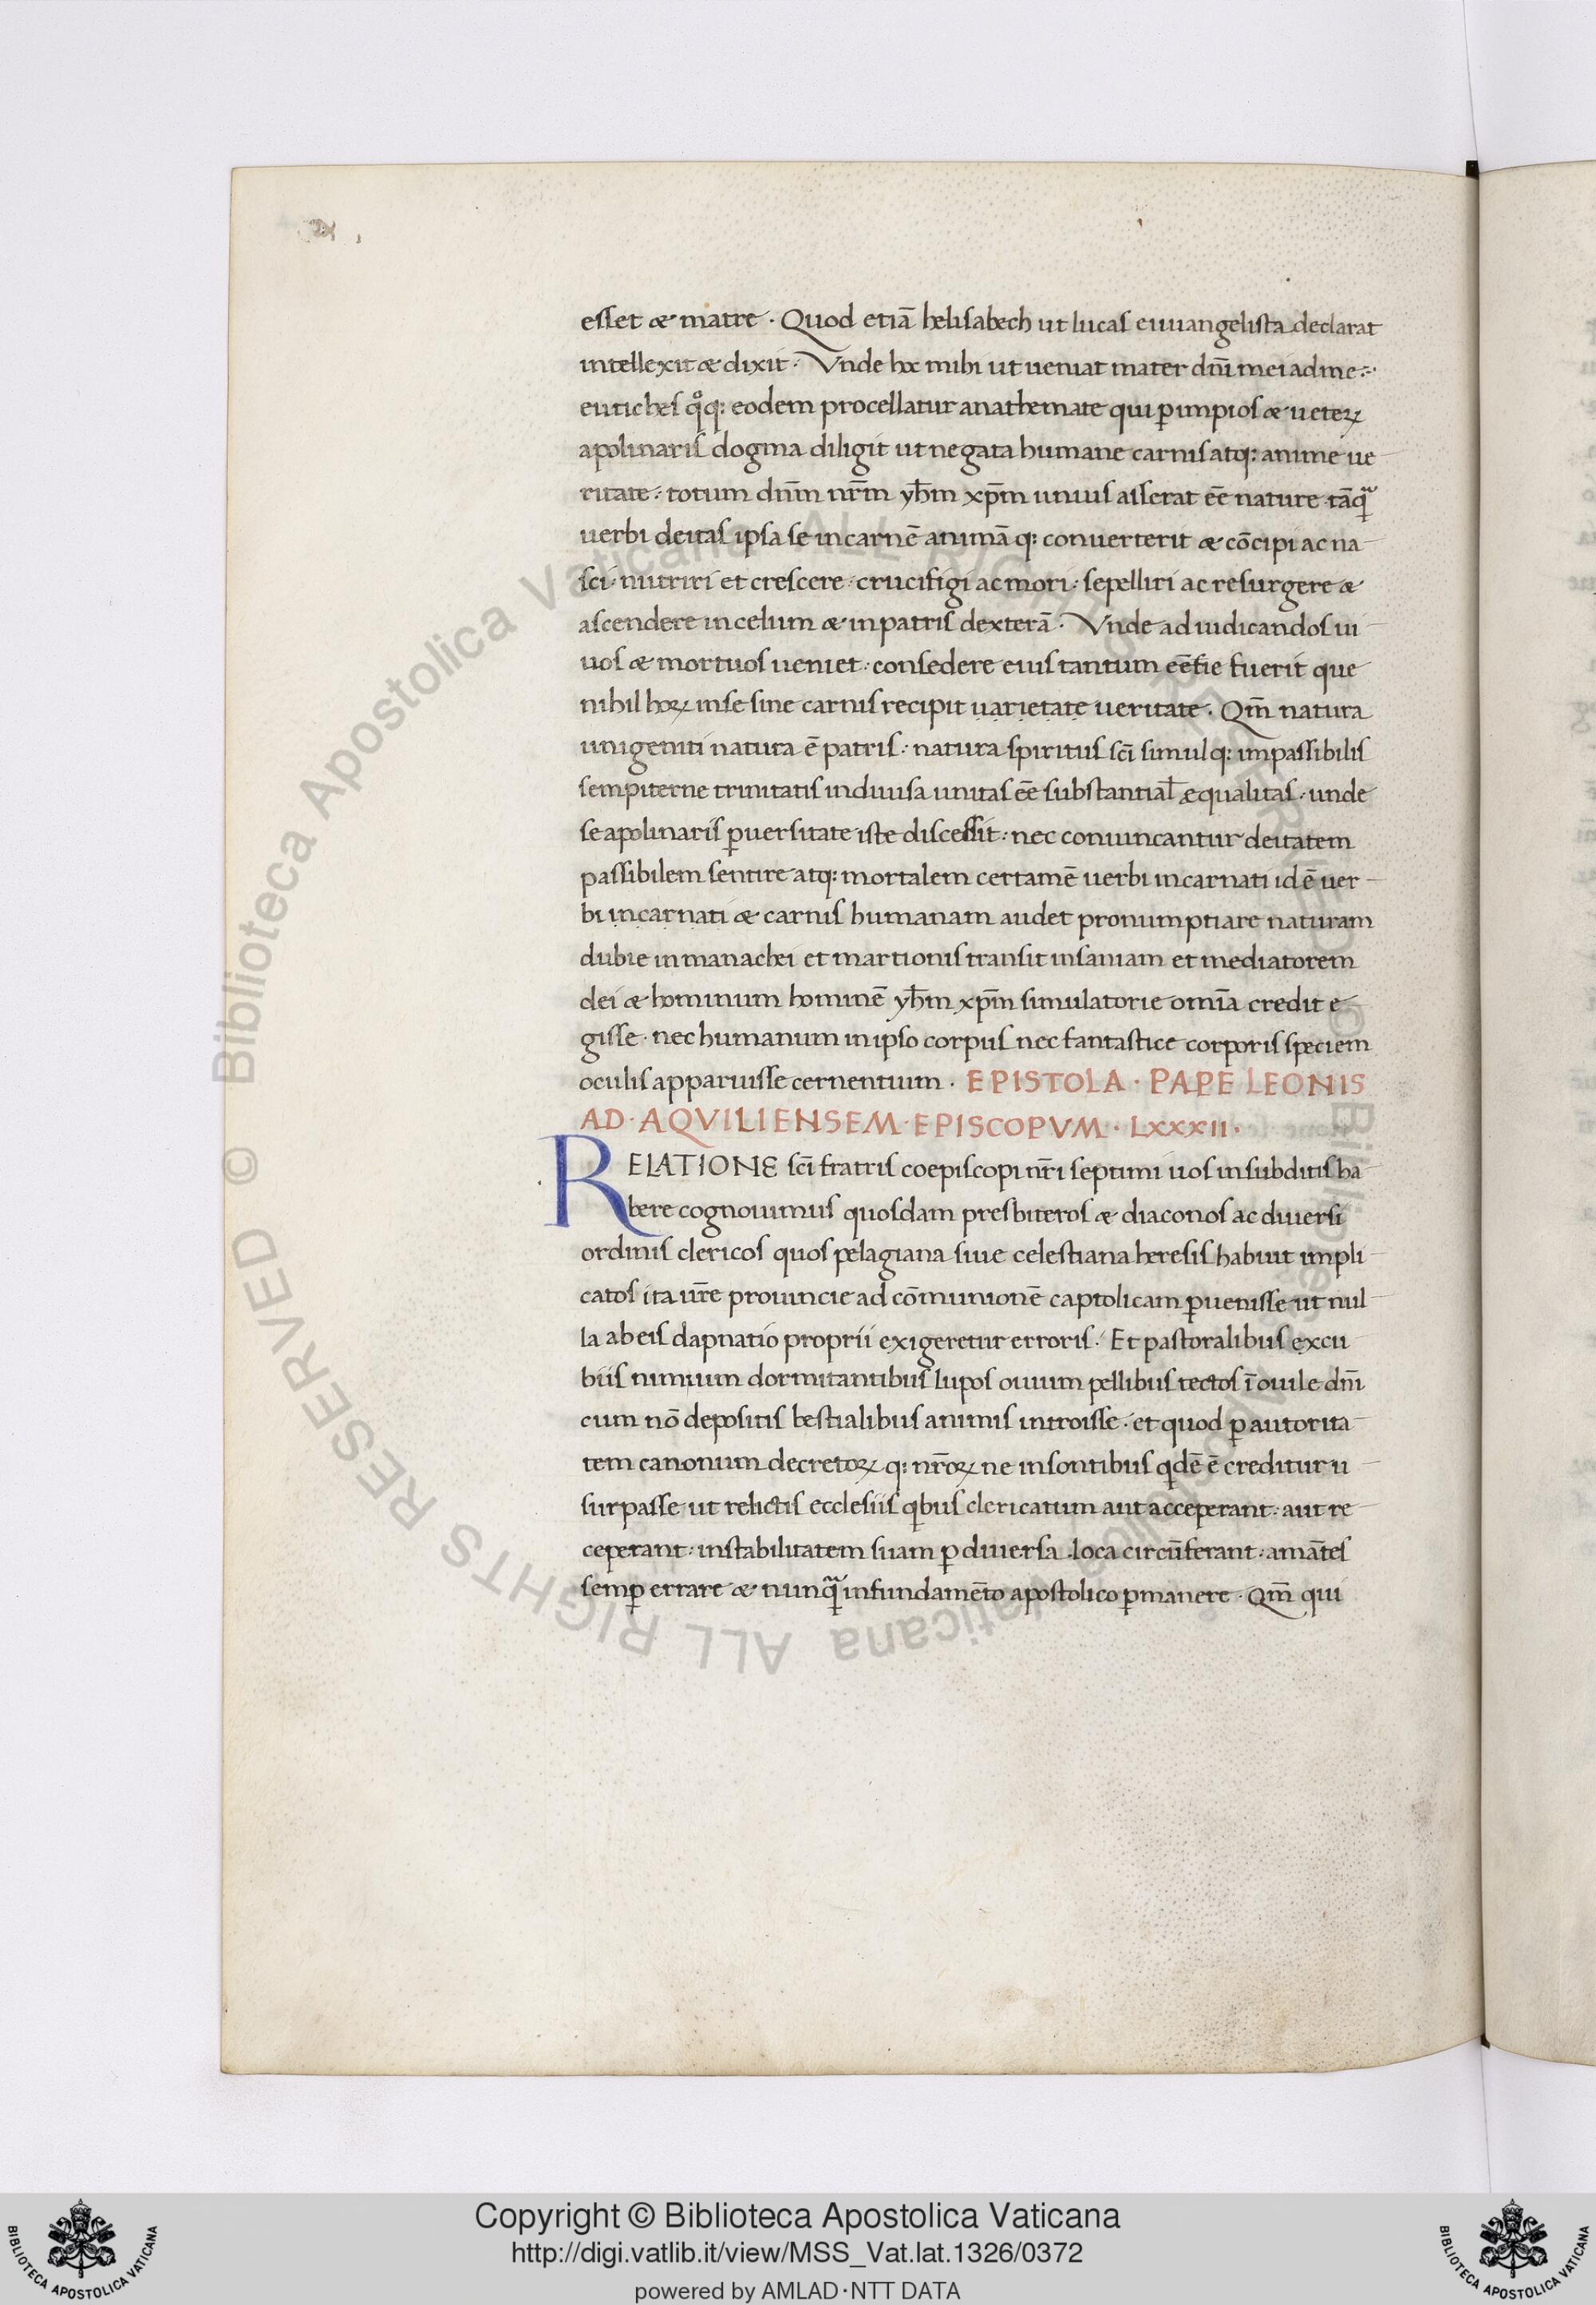 esset & matre · Quod etiā helisabech ut lucas euuangelista declarat
intellexit & dixit · Vnde hoc mihi ut ueniat mater dn̄i mei ad me ·
eutiches qͦq: eodem procellatur anathemate qui ꝑ impios & ueteꝝ
apolinaris dogma diligit ut negata humane carnis atq: anime ue
ritate · totum dn̄m nr̄m yh̄m xp̄m unius asserat eē nature tāqͣ
uerbi deitas ipsa se in carnē animā q: conuerterit & cōcipi ac na
sci · nutriri et crescere · crucifigi ac mori · sepelliri ac resurgere &
ascendere in celum & in patris dexterā · Vnde ad iudicandos ui
uos & mortuos ueniet · consedere eius tantum eēt̄ie fuerit que
nihil hoꝝ in se sine carnis recipit uarietate ueritate · Qm̄ natura
unigeniti natura ē patris · natura spiritus sc̄i simul q: impassibilis
sempiterne trinitatis indiuisa unitas eē substantial̄ æqualitas · unde
se apolinaris ꝑuersitate iste discessit · nec conuincantur deitatem
passibilem sentire atq: mortalem certamē uerbi incarnati id ē uer
bi incarnati & carnis humanam audet pronumptiare naturam
dubie in manachei et martionis transit insaniam et mediatorem
dei & hominum hominē yh̄m xp̄m simulatorie omīa credit e
gisse · nec humanum in ipso corpus nec fantastice corporis speciem
oculis apparuisse cernentium · EPISTOLA · PAPE LEONIS
AD · AQVILIENSEM · EPISCOPVM · LXXXII ·
RELATIONE sc̄i fratris coepiscopi nr̄i septimi uos in subditis ha
bere cognouimus quosdam presbiteros & diaconos ac diuersi
ordinis clericos quos pelagiana siue celestiana heresis habuit impli
catos ita ur̄e prouincie ad cōmunionē captolicam ꝑuenisse ut nul
la ab eis dapnatio proprii exigeretur erroris · Et pastoralibus excu
biis nimium dormitantibus lupos ouium pellibus tectos ī ouile dn̄i
cum nō depositis bestialibus animis introisse · et quod ꝑ autorita
tem canonum decretoꝝ q: nr̄oꝝ ne insontibus qͥdē ē creditur u
surpasse · ut relictis ecclesiis qͥbus clericatum aut acceperant · aut re
ceperant · instabilitatem suam ꝑ diuersa loca circūferant · amātes
semꝑ errare & nunqͣ in fundamēto apostolico ꝑmanere · Qm̄ qui
© Biblioteca Apostolica Vaticana ALL RIGHTS RESERVED
© Biblioteca Apostolica Vaticana ALL RIGHTS RESERVED
Copyright © Biblioteca Apostolica Vaticana
http://digi.vatlib.it/view/MSS_Vat.lat.1326/0372
powered by AMLAD·NTT DATA
BIBLIOTECA APOSTOLICA VATICANA
BIBLIOTECA APOSTOLICA VATICANA